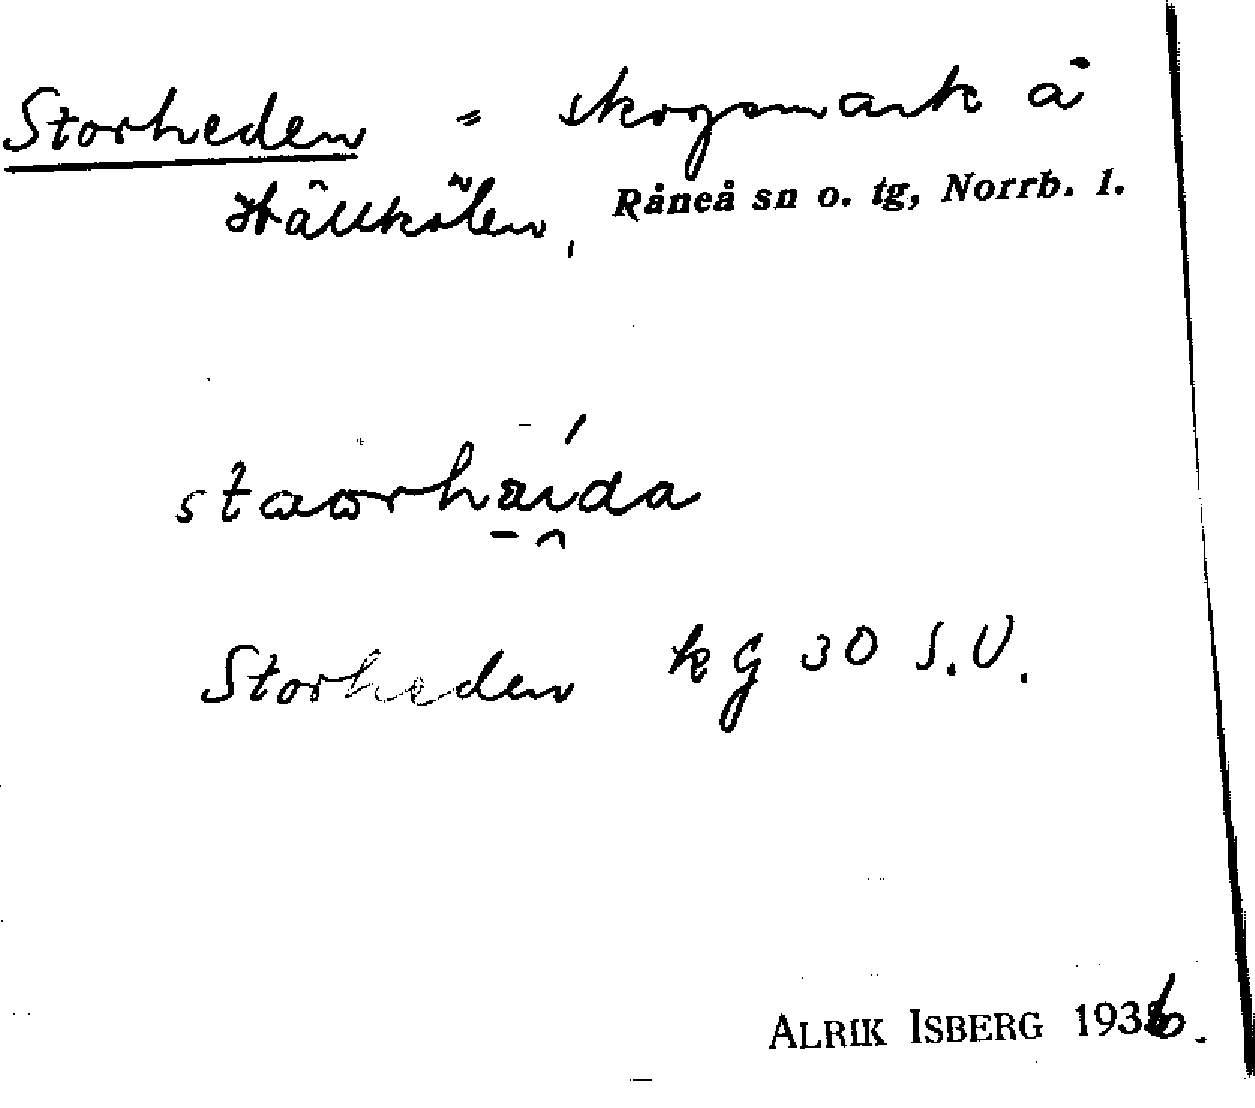 Storheden = skogsmark å
Hällkölen, Råneå sn o. tg, Norrb. l.
staorhaida
Storheden kg 30 S.V.
ALRIK ISBERG 1936.